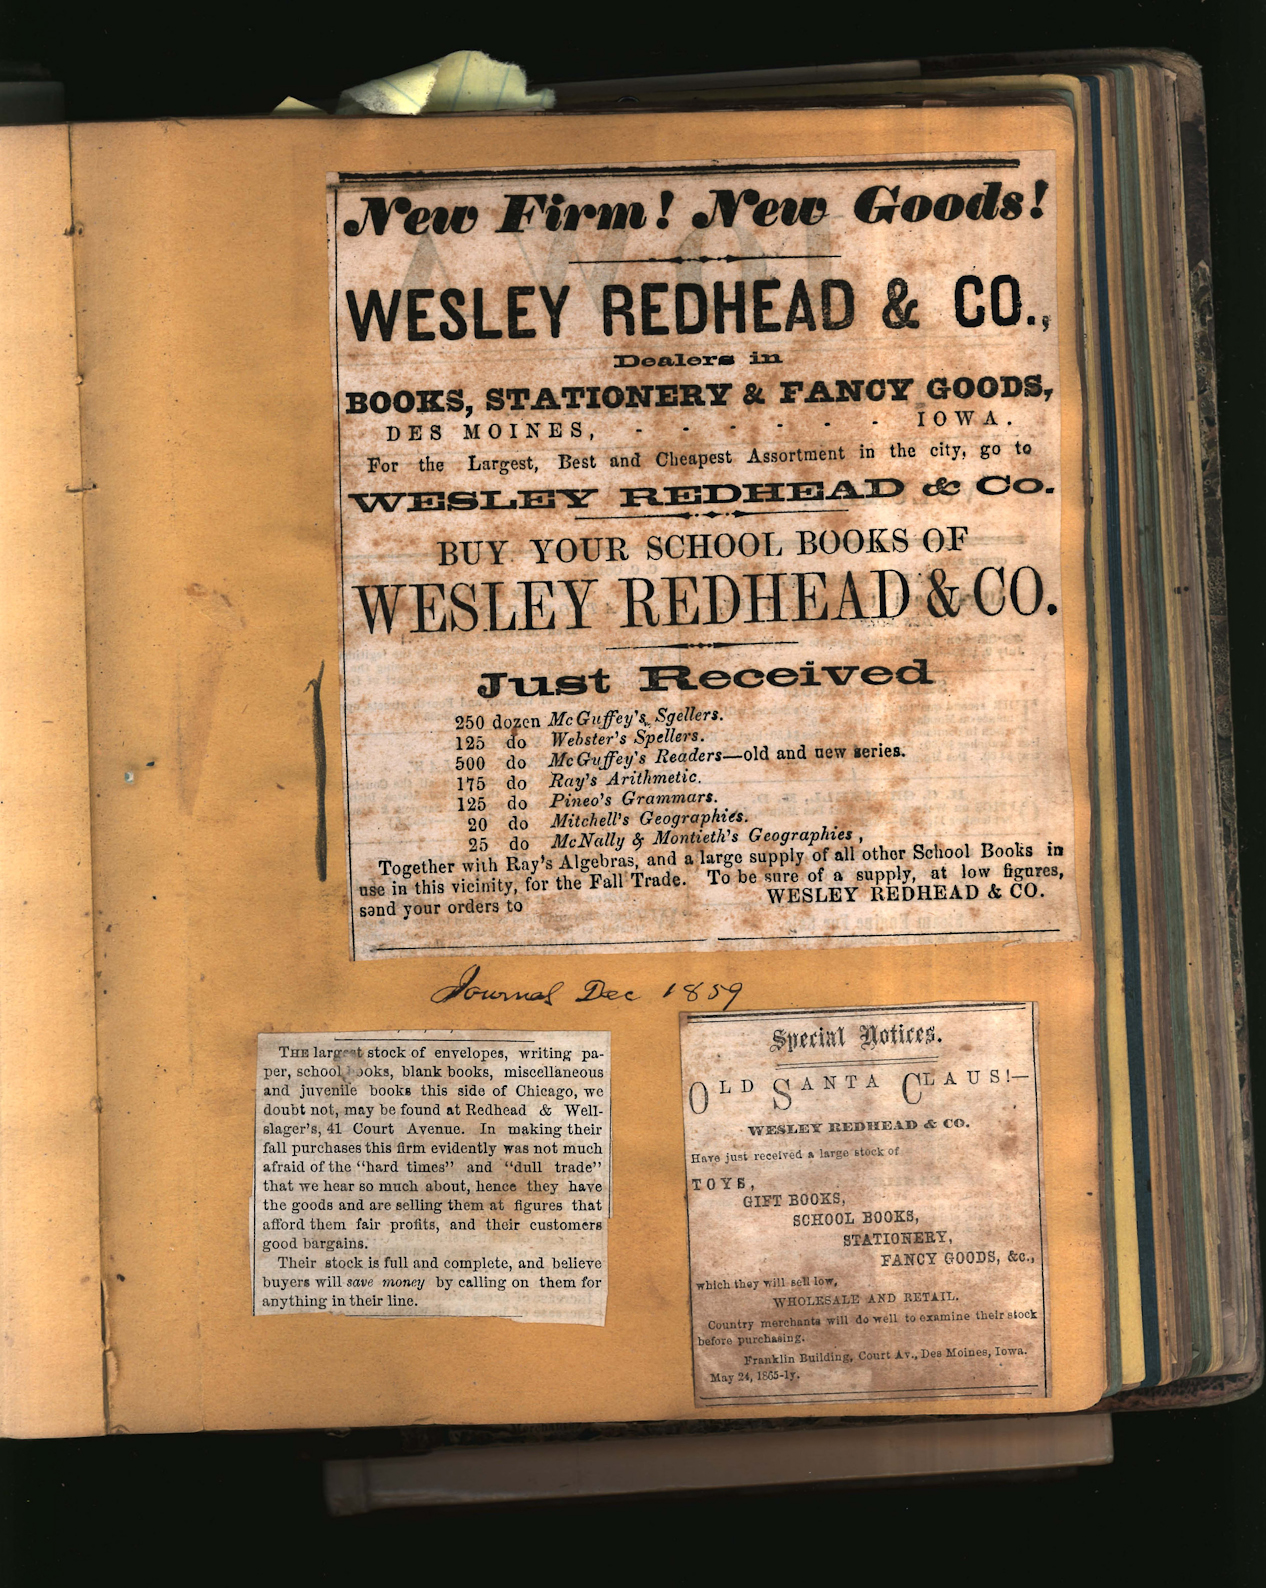 New Firm! New Goods!
WESLEY REDHEAD & CO.,
Dealers in
BOOKS, STATIONERY & FANCY GOODS,
DES MOINES, - - - - - - IOWA.
For the Largest, Best and Cheapest Assortment in the city, go to
WESLEY REDHEAD & Co.
BUY YOUR SCHOOL BOOKS OF
WESLEY REDHEAD & CO.
Just Received
250 dozen McGuffey's Sgellers.
125 do Webster's Spellers.
500 do McGuffey's Readers—old and new series.
175 do Ray's Arithmetic.
125 do Pineo's Grammars.
20 do Mitchell's Geographies.
25 do McNally & Montieth's Geographies,
Together with Ray's Algebras, and a large supply of all other School Books in
use in this vicinity, for the Fall Trade. To be sure of a supply, at low figures,
send your orders to WESLEY REDHEAD & CO.
Journal Dec 1859
THE largest stock of envelopes, writing pa-
per, school books, blank books, miscellaneous
and juvenile books this side of Chicago, we
doubt not, may be found at Redhead & Well-
slager's, 41 Court Avenue. In making their
fall purchases this firm evidently was not much
afraid of the "hard times" and "dull trade"
that we hear so much about, hence they have
the goods and are selling them at figures that
afford them fair profits, and their customers
good bargains.
Their stock is full and complete, and believe
buyers will save money by calling on them for
anything in their line.
Special Notices.
OLD SANTA CLAUS!—
WESLEY REDHEAD & CO.
Have just received a large stock of
TOYS,
GIFT BOOKS,
SCHOOL BOOKS,
STATIONERY,
FANCY GOODS, &c.,
which they will sell low,
WHOLESALE AND RETAIL.
Country merchants will do well to examine their stock
before purchasing.
Franklin Building, Court Av., Des Moines, Iowa.
May 24, 1865-ly.